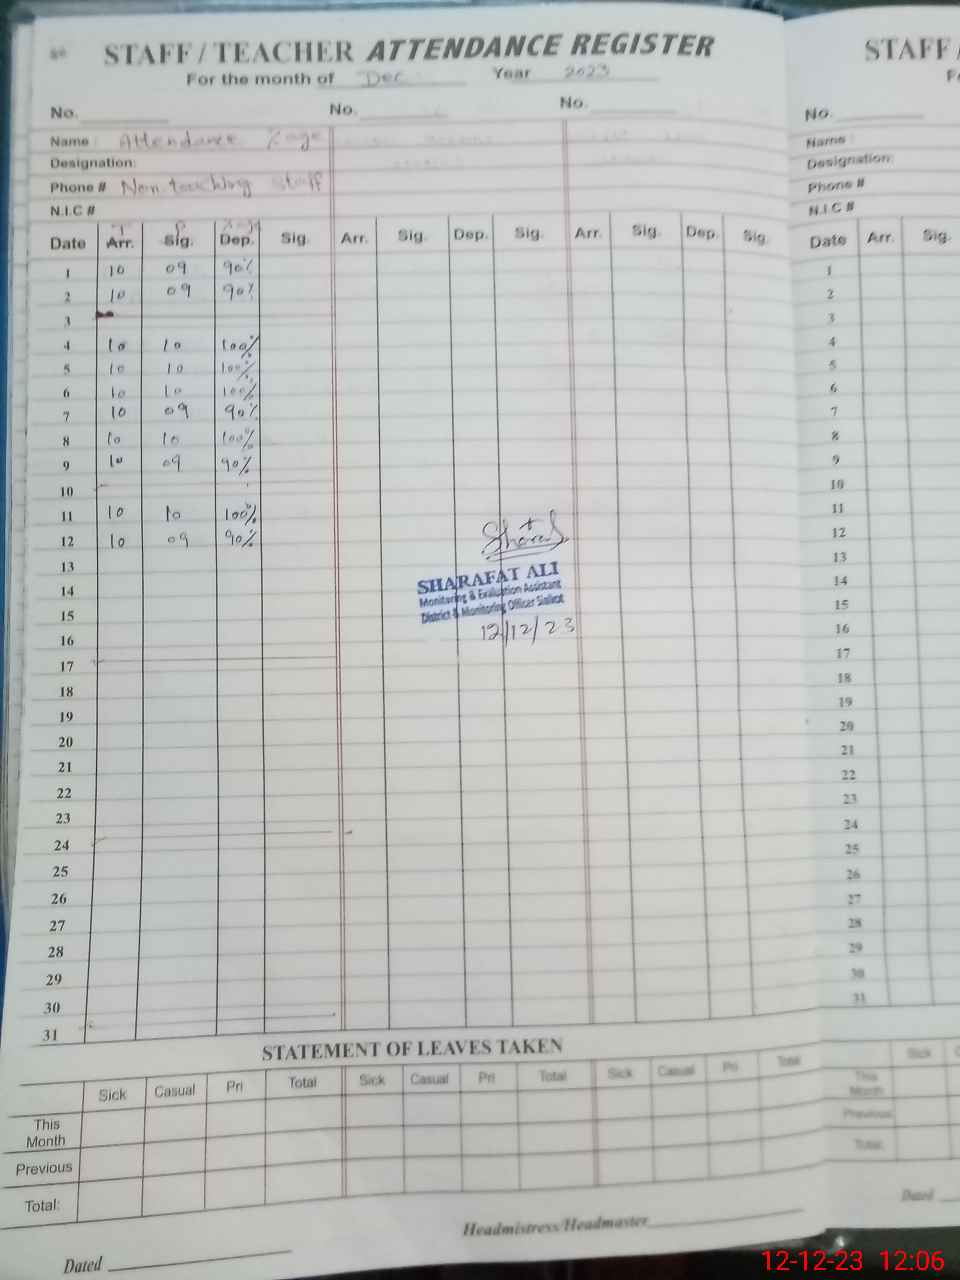 STAFF / TEACHER ATTENDANCE REGISTER
For the month of Dec Year 2023
No. No. No.
Name : Attendance %age
Designation:
Phone # Non teaching staff
N.I.C #
T P %age
Date Arr. Sig. Dep. Sig. Arr. Sig. Dep. Sig. Arr. Sig. Dep. Sig.
1 10 09 90%
2 10 09 90%
3
4 10 10 100%
5 10 10 100%
6 10 10 100%
7 10 09 90%
8 10 10 100%
9 10 09 90%
10
11 10 10 100%
12 10 09 90%
13
14
15
16
17
18
19
20
21
22
23
24
25
26
27
28
29
30
31
SHARAFAT ALI
Monitoring & Evaluation Assistant
District & Monitoring Officer Sialkot
12/12/23
STATEMENT OF LEAVES TAKEN
Sick Casual Pri Total Sick Casual Pri Total Sick Casual Pri Total
This Month
Previous
Total:
Headmistress/Headmaster
Dated
STAFF /
No.
Name :
Designation:
Phone #
N.I.C #
Date Arr. Sig.
1
2
3
4
5
6
7
8
9
10
11
12
13
14
15
16
17
18
19
20
21
22
23
24
25
26
27
28
29
30
31
Sick
This Month
Previous
Total:
Dated
12-12-23 12:06